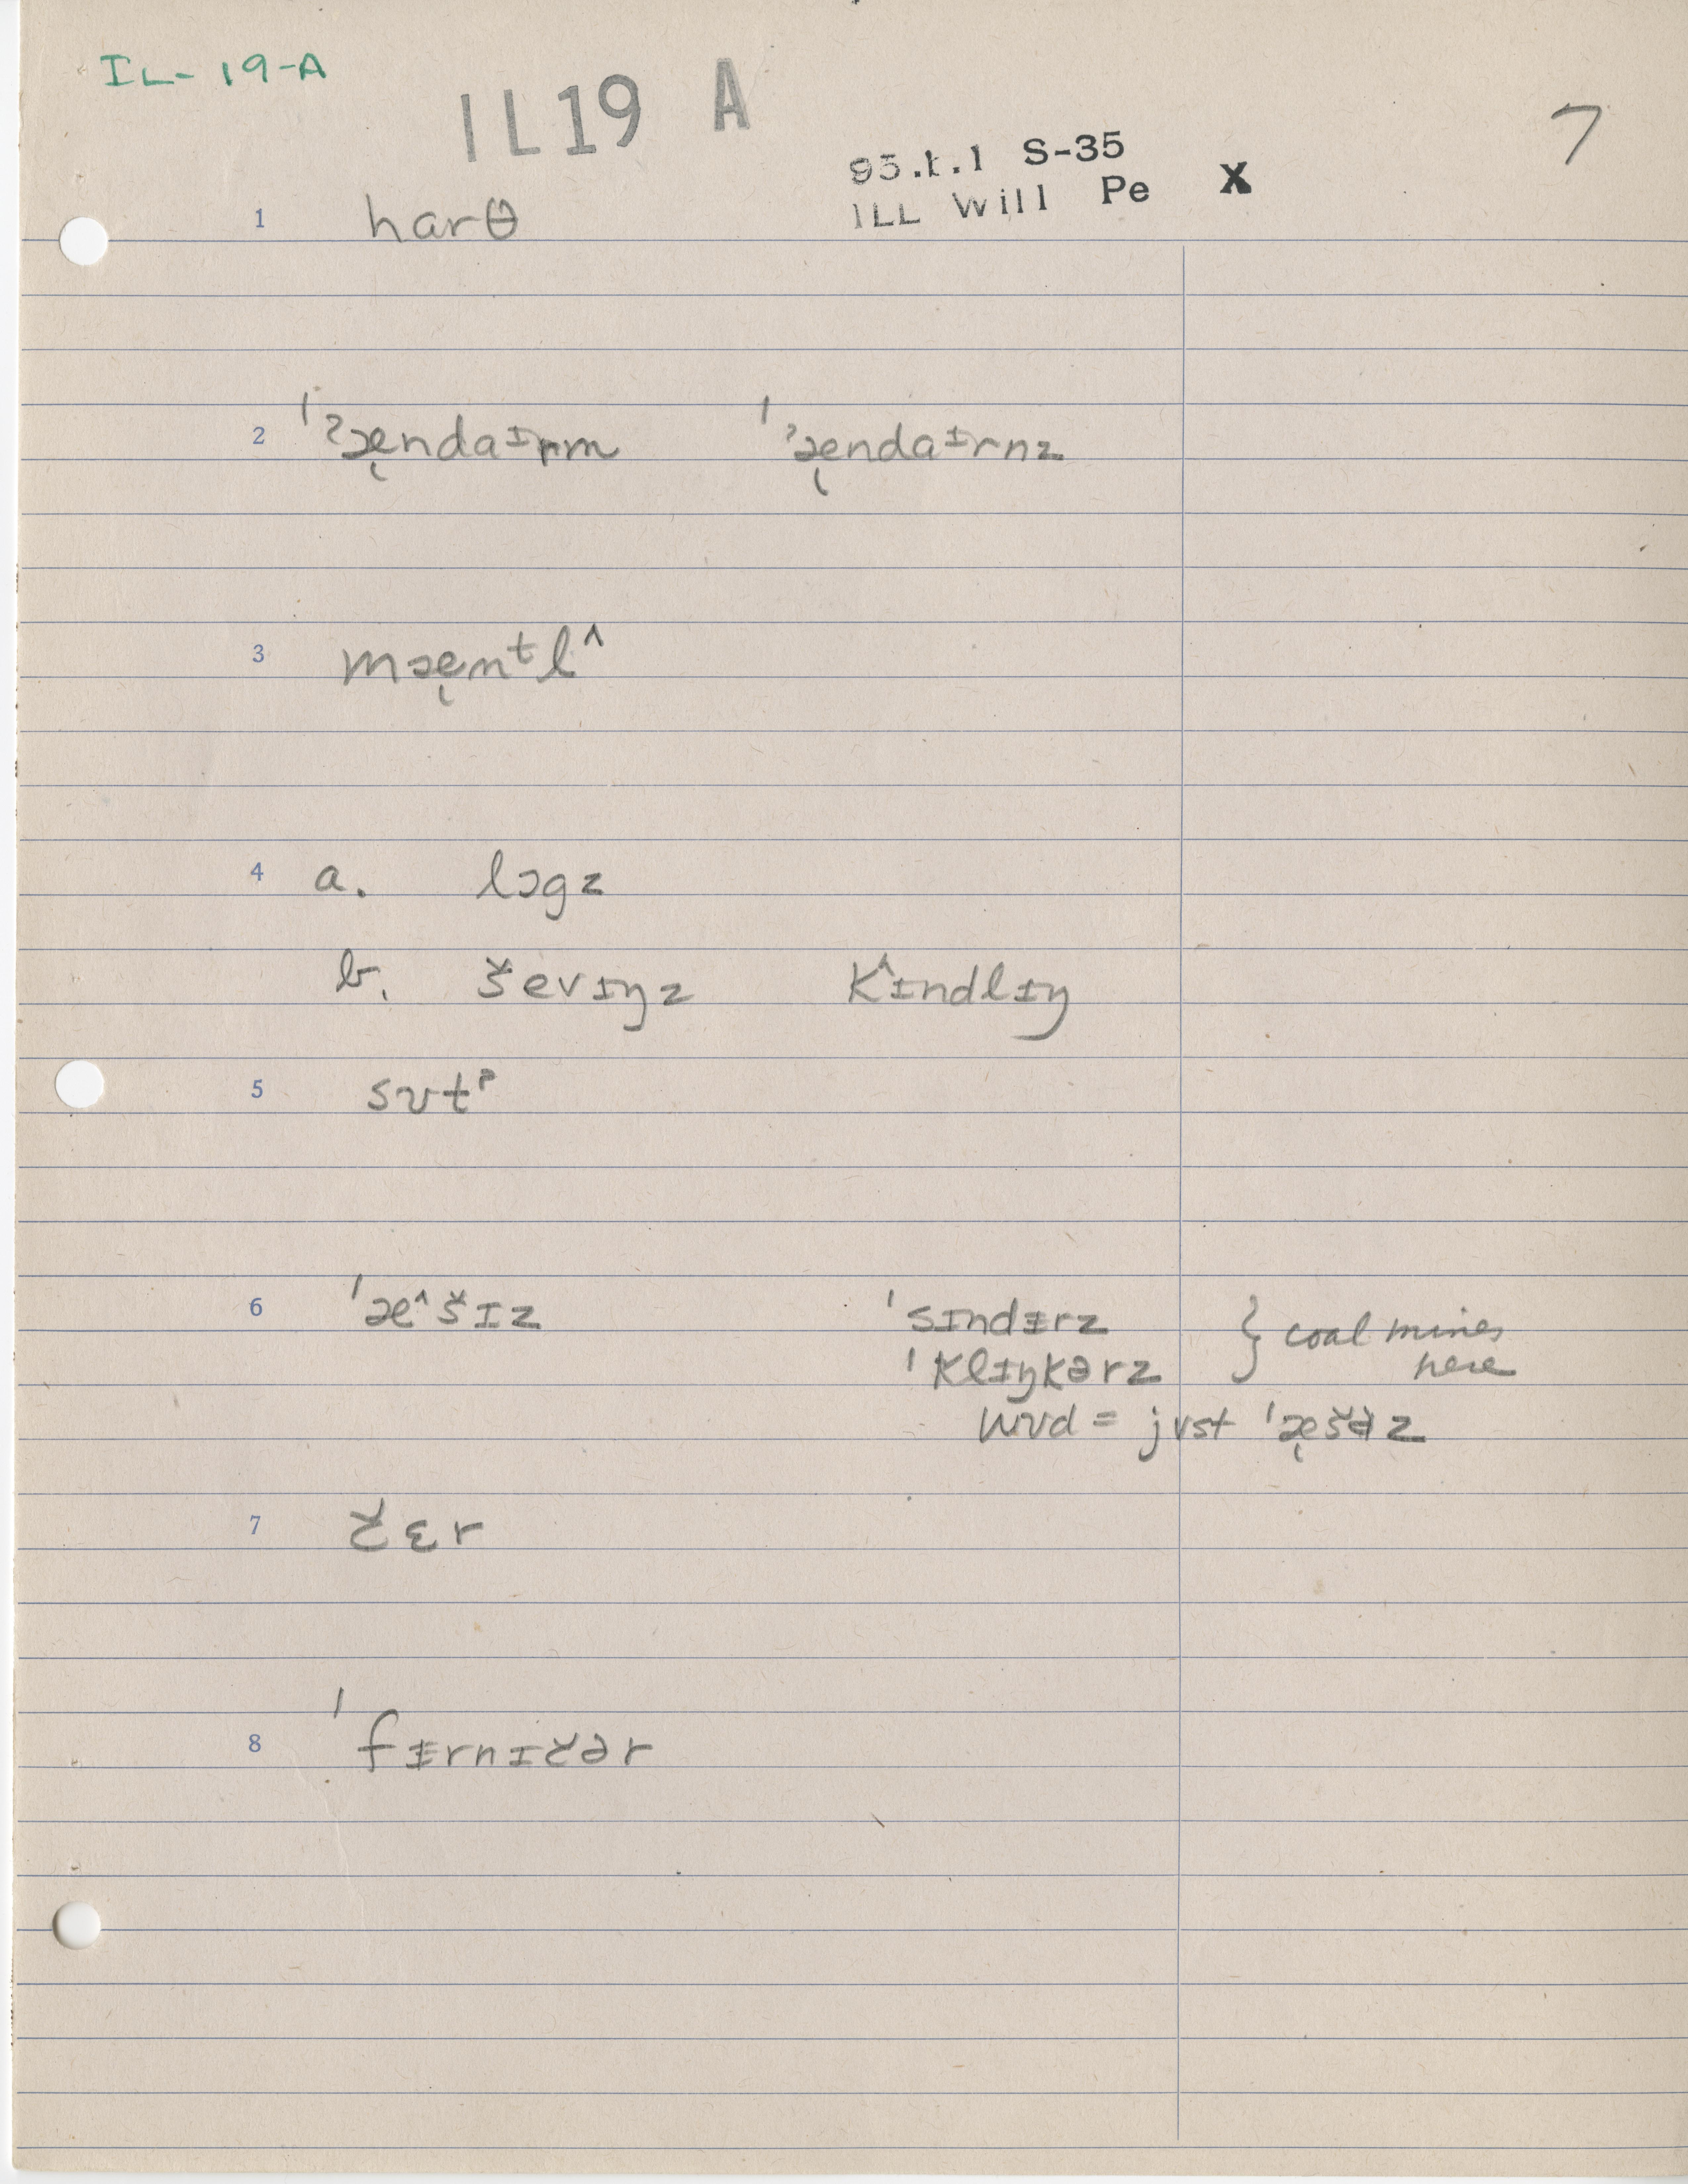 IL-19-A
IL19 A
7
93.1.1 S-35
ILL Will Pe X
1 harθ
2 ˈˀæ̨ndaɪrnm ˈˀæ̨ndaɪrnz
3 mæ̨nᵗl^
4 a. lɔgz
b. ševɪŋz k^ɪndlɪŋ
5 sʊtˀ
6 ˈæ^šɪz ˈsɪndɨrz } coal mines
ˈklɪŋkərz here
wʊd = jʊst ˈæ̨šəz
7 čɛr
8 ˈfɨrnɪčər